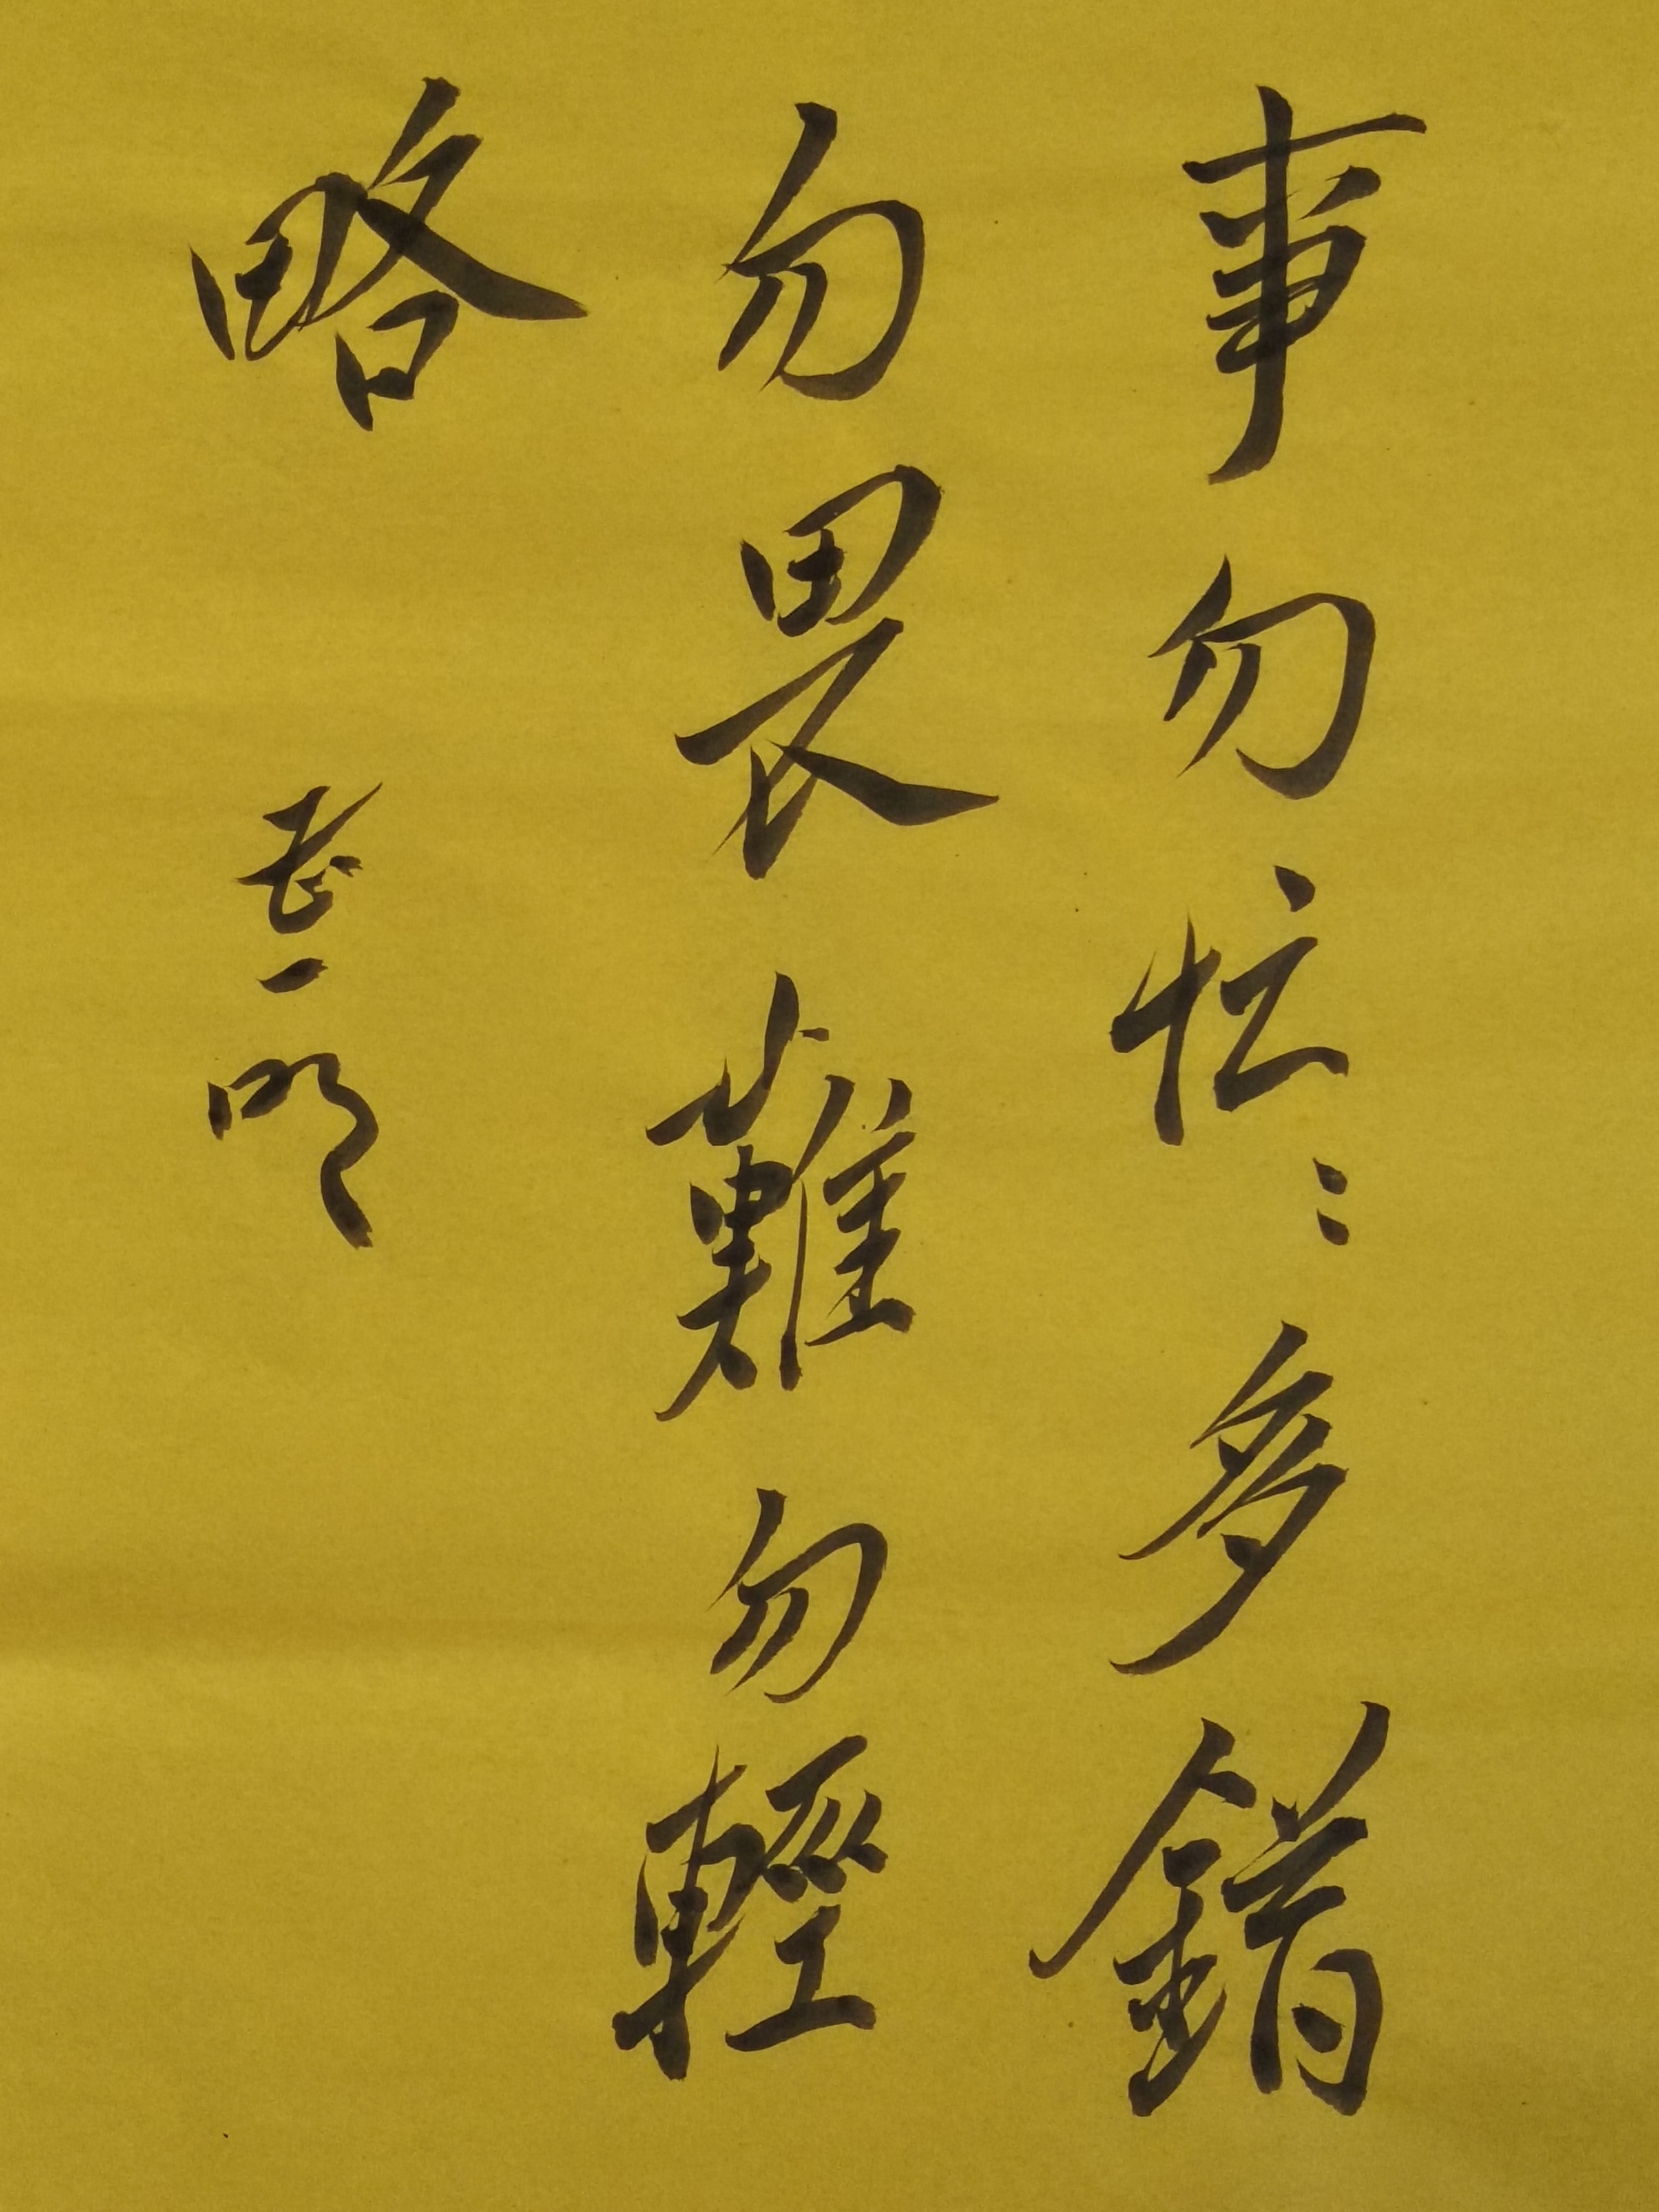 事勿忙〻多錯
勿畏難勿輕
略
一明